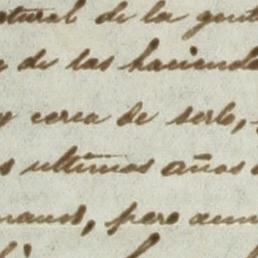 natural de la gente
de las haciendas
y cerca de serlo,
ultimos años
pero aun